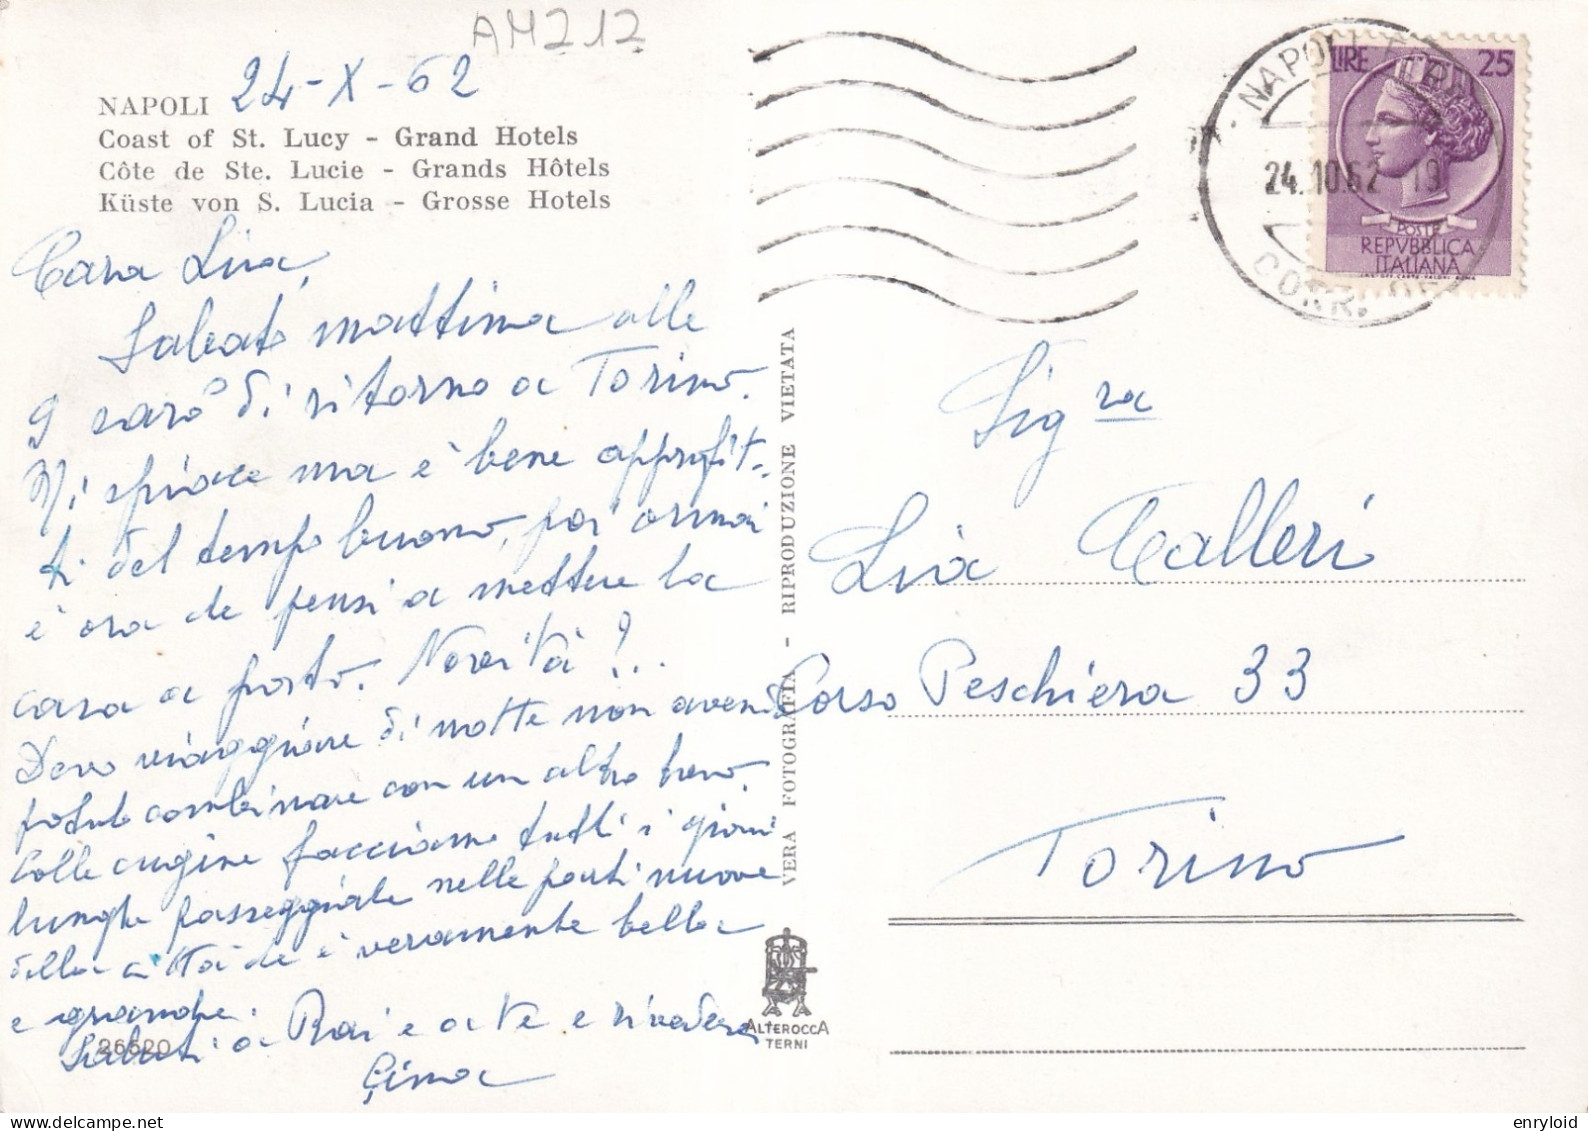 AM212
24-X-62
NAPOLI
Coast of St. Lucy - Grand Hotels
Côte de Ste. Lucie - Grands Hôtels
Küste von S. Lucia - Grosse Hotels
Cara Lina,
Sabato mattina alle
9 sarò di ritorno a Torino.
Mi spiace ma è bene approfit-
ti del tempo buono, poi ormai
è ora che pensi a mettere la
casa a posto. Novità?..
Devo viaggiare di notte non avendo
potuto combinare con un altro treno.
Colle cugine facciamo tutti i giorni
lunghe passeggiate nelle parti nuove
della città che è veramente bella
e grande.
Saluti a Rai e a te e rivederci
Gina
26520
VERA FOTOGRAFIA - RIPRODUZIONE VIETATA
ALTEROCCA
TERNI
NAPOLI FERR.
24.10.62 19
CORR.
LIRE 25
POSTE
REPVBBLICA
ITALIANA
Sig.ra
Lina Calleri
Corso Peschiera 33
Torino
enryloid